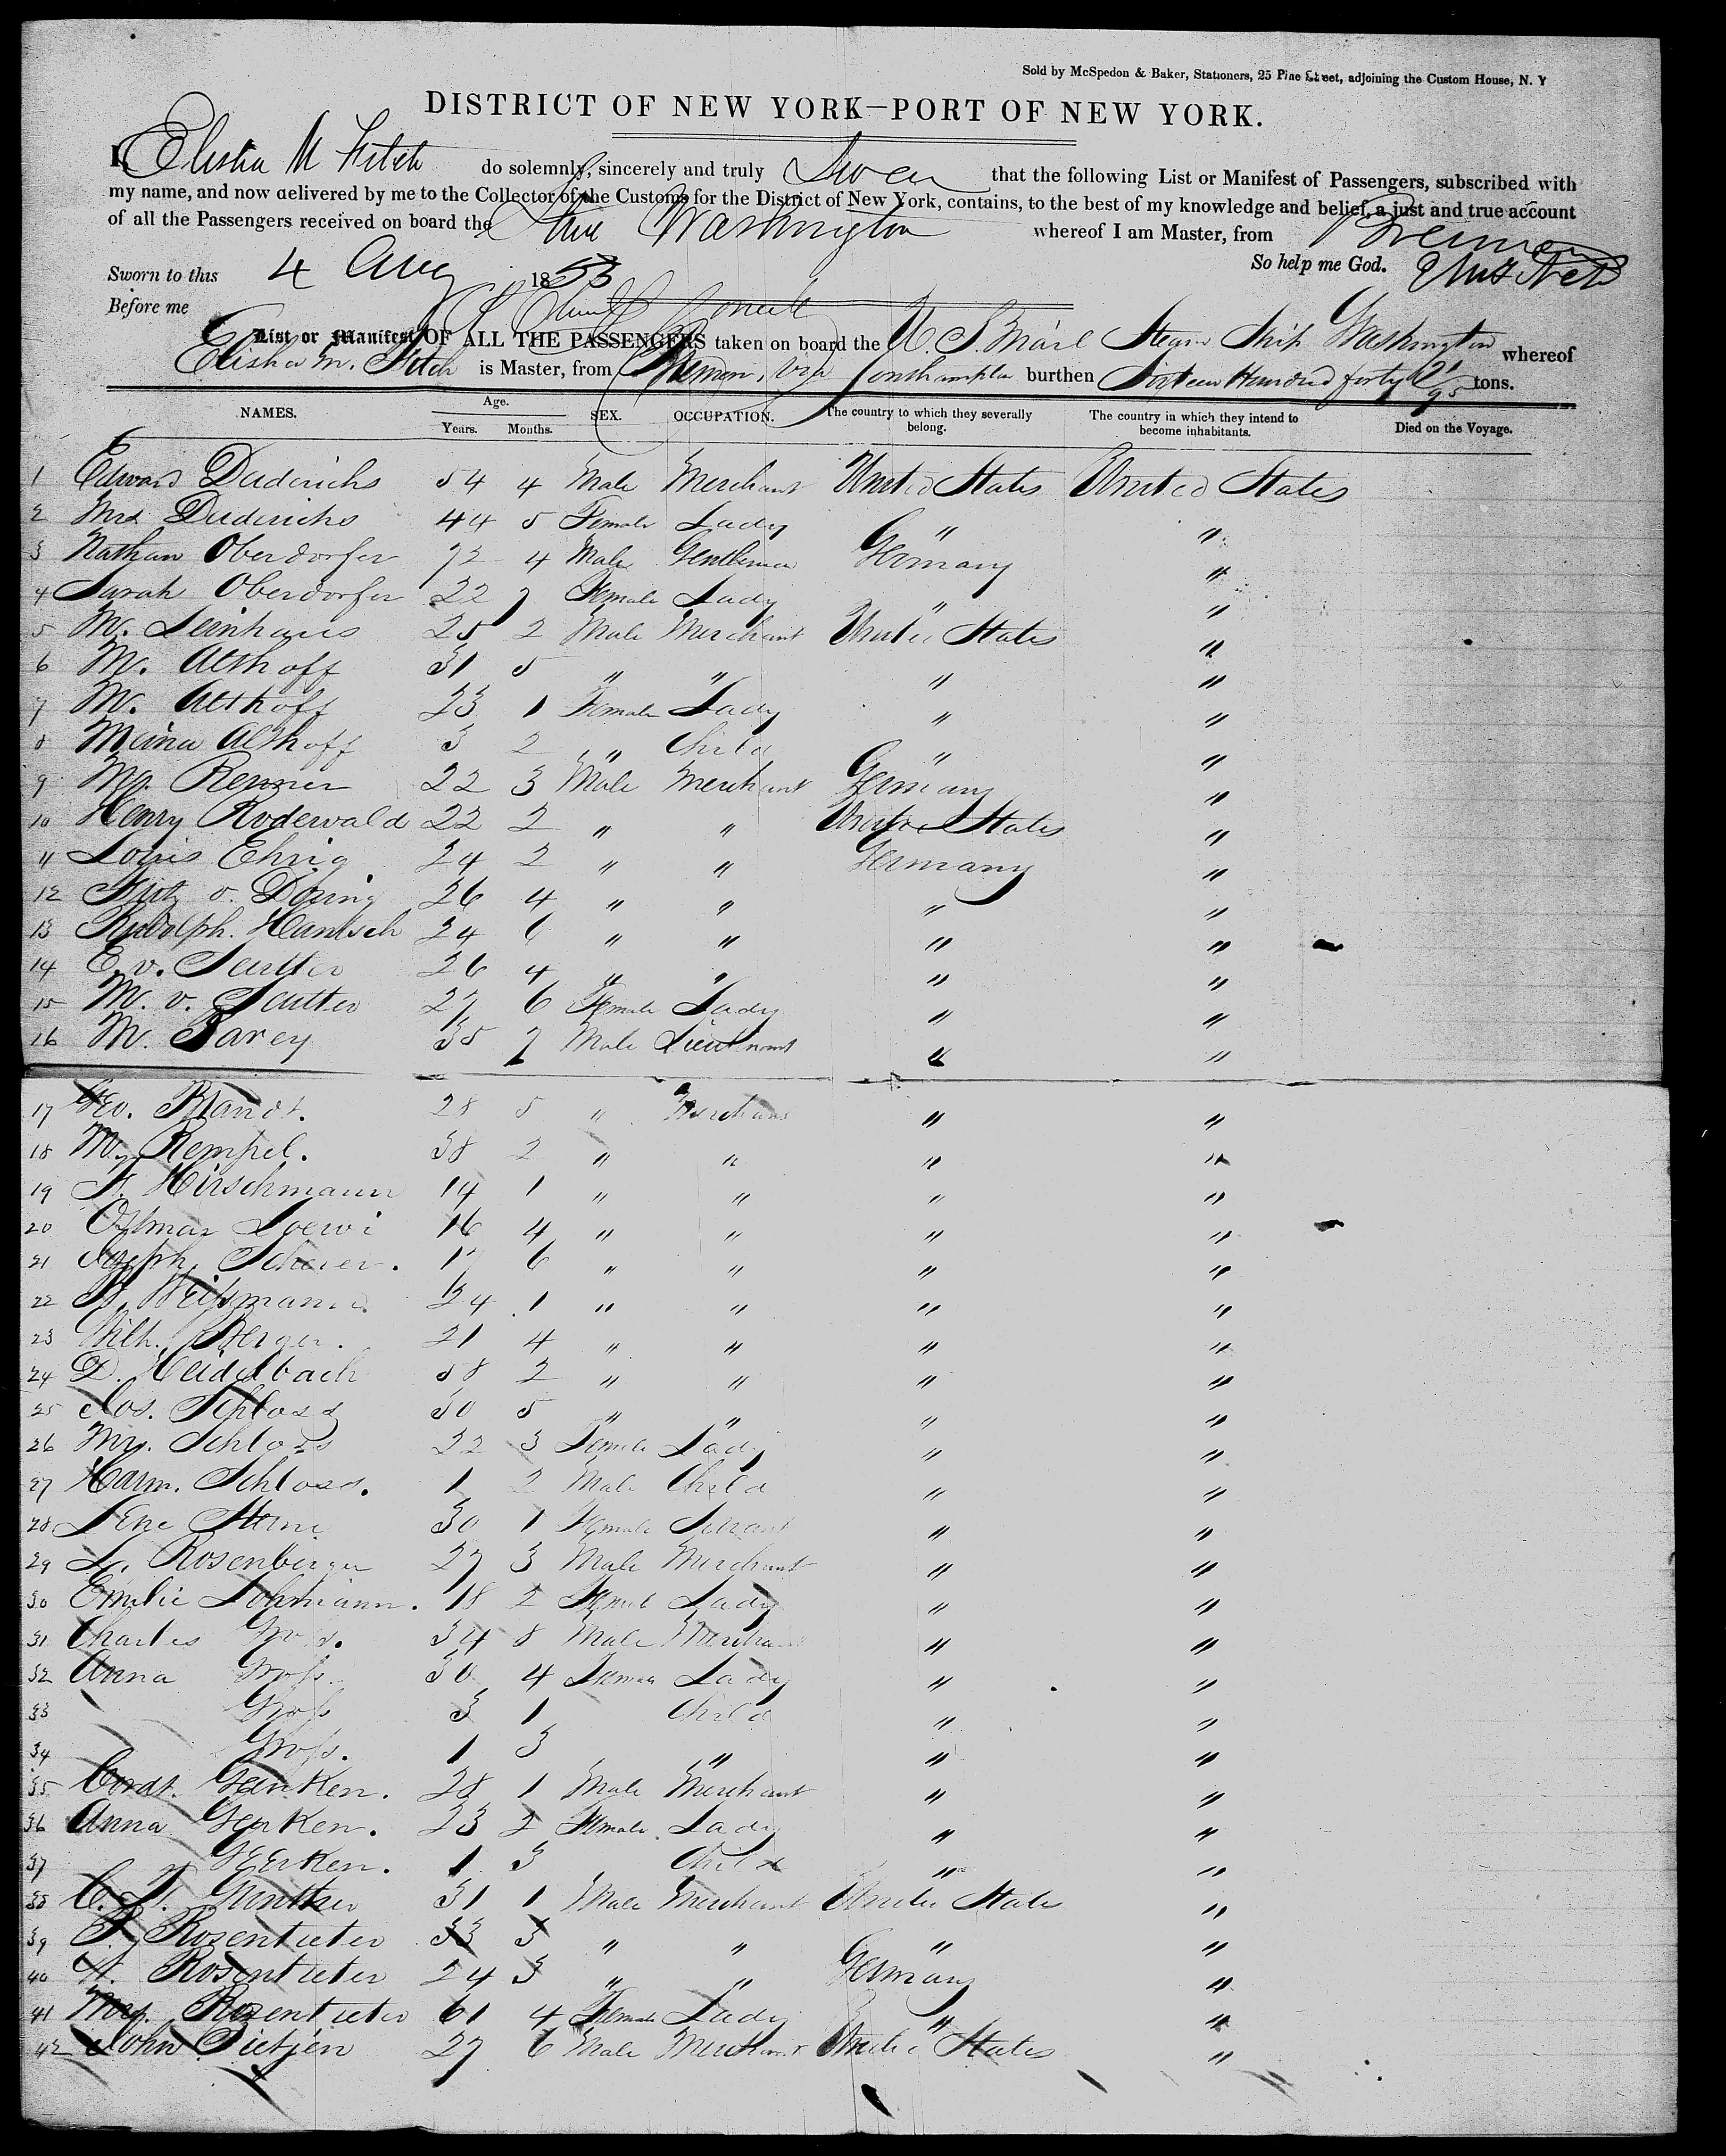 Sold by McSpedon & Baker, Stationers, 25 Pine Street, adjoining the Custom House, N. Y
DISTRICT OF NEW YORK—PORT OF NEW YORK.
I, Elisha M Fitch do solemnly, sincerely and truly Swear that the following List or Manifest of Passengers, subscribed with
my name, and now delivered by me to the Collector of the Customs for the District of New York, contains, to the best of my knowledge and belief, a just and true account
of all the Passengers received on board the Washington whereof I am Master, from Bremen
So help me God.
Sworn to this 4 Aug 1853
Before me
List or Manifest OF ALL THE PASSENGERS taken on board the U. S. Mail Steam Ship Washington whereof
Elisha M. Fitch is Master, from Bremen, via Southampton burthen Sixteen Hundred forty 21/95 tons.
NAMES. Age. Years. Months. SEX. OCCUPATION. The country to which they severally belong. The country in which they intend to become inhabitants. Died on the Voyage.
1 Edward Diederichs 54 4 Male Merchant United States United States
2 Mrs Diederichs 44 5 Female Lady " "
3 Nathan Oberdorfer 72 4 Male Gentleman Germany "
4 Sarah Oberdorfer 22 7 Female Lady " "
5 M. Leinhaus 25 2 Male Merchant United States "
6 M. Althoff 31 5 " " " "
7 M. Althoff 23 1 Female Lady " "
8 Meina Althoff 3 2 " Child " "
9 Mr. Renner 22 3 Male Merchant Germany "
10 Henry Rodewald 22 2 " " United States "
11 Louis Ehrig 24 2 " " Germany "
12 Fritz v. Döring 26 4 " " " "
13 Rudolph. Hantsch 24 6 " " " "
14 E. v. Seutter 26 4 " " " "
15 M. v. Seutter 27 6 Female Lady " "
16 M. Parey 35 7 Male Lieutenant " "
17 Geo. Brandt. 28 5 " Merchant " "
18 M. Rempel. 38 2 " " " "
19 F. Hirschmann 14 1 " " " "
20 Ottmar Loewi 16 4 " " " "
21 Joseph Scheuer. 17 6 " " " "
22 Weissmann 24 1 " " " "
23 Wilh. Berger. 21 4 " " " "
24 D. Heidelbach 58 2 " " " "
25 Jos. Schloss 30 5 " " " "
26 Mrs. Schloss 22 3 Female Lady " "
27 Harm. Schloss. 1 2 Male Child " "
28 Lene Stern 30 1 Female Servant " "
29 L. Rosenberger 27 3 Male Merchant " "
30 Emilie Lohmann. 18 2 Female Lady " "
31 Charles Gross. 34 8 Male Merchant " "
32 Anna Gross 30 4 Female Lady " "
33 Gross 3 1 Child " "
34 Gross. 1 3 " " "
35 Cordt. Gerken. 28 1 Male Merchant " "
36 Anna Gerken. 23 2 Female Lady " "
37 Gerken. 1 3 Child " "
38 C. Gunther 31 1 Male Merchant United States "
39 F. Rosentreter 33 3 " " " "
40 H. Rosentreter 24 3 " " Germany "
41 Mrs. Rosentreter 61 4 Female Lady " "
42 John Tietjen 27 6 Male Merchant United States "